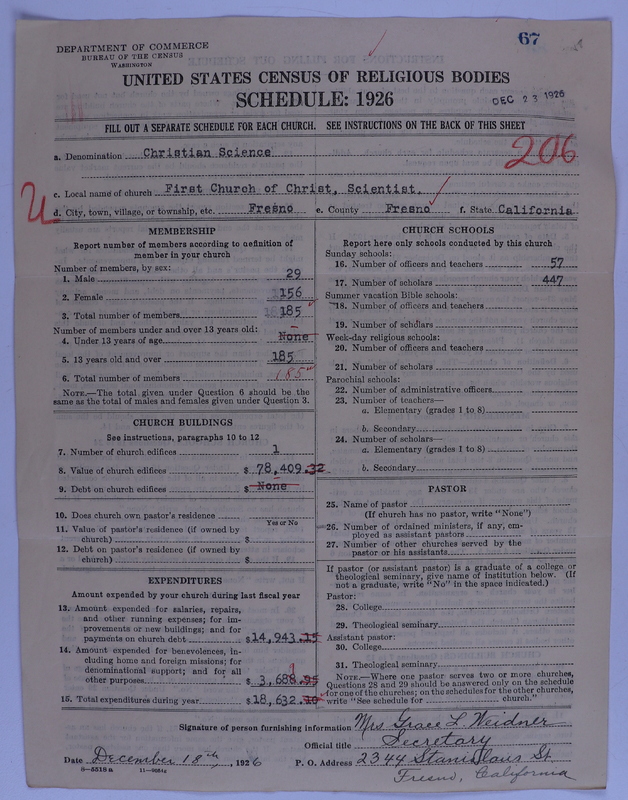 67
DEPARTMENT OF COMMERCE
BUREAU OF THE CENSUS
WASHINGTON
UNITED STATES CENSUS OF RELIGIOUS BODIES
SCHEDULE: 1926
DEC 23 1926
FILL OUT A SEPARATE SCHEDULE FOR EACH CHURCH. SEE INSTRUCTIONS ON THE BACK OF THIS SHEET
206
a. Denomination Christian Science
c. Local name of church First Church of Christ, Scientist.
U
d. City, town, village, or township, etc. Fresno e. County Fresno f. State California
MEMBERSHIP
Report number of members according to definition of
member in your church
Number of members, by sex:
1. Male 29
2. Female 156
3. Total number of members 185
Number of members under and over 13 years old:
4. Under 13 years of age None
5. 13 years old and over 185
6. Total number of members 185
NOTE.—The total given under Question 6 should be the
same as the total of males and females given under Question 3.
CHURCH BUILDINGS
See instructions, paragraphs 10 to 12
7. Number of church edifices 1
8. Value of church edifices $ 78,409.32
9. Debt on church edifices $ None
10. Does church own pastor's residence
Yes or No
11. Value of pastor's residence (if owned by
church) $
12. Debt on pastor's residence (if owned by
church) $
EXPENDITURES
Amount expended by your church during last fiscal year
13. Amount expended for salaries, repairs,
and other running expenses; for im-
provements or new buildings; and for
payments on church debt $14,943.15
14. Amount expended for benevolences, in-
cluding home and foreign missions; for
denominational support; and for all
other purposes $ 3,688.95
15. Total expenditures during year $18,632.10
CHURCH SCHOOLS
Report here only schools conducted by this church
Sunday schools:
16. Number of officers and teachers 57
17. Number of scholars 447
Summer vacation Bible schools:
18. Number of officers and teachers
19. Number of scholars
Week-day religious schools:
20. Number of officers and teachers
21. Number of scholars
Parochial schools:
22. Number of administrative officers
23. Number of teachers—
a. Elementary (grades 1 to 8)
b. Secondary
24. Number of scholars—
a. Elementary (grades 1 to 8)
b. Secondary
PASTOR
25. Name of pastor
(If church has no pastor, write "None")
26. Number of ordained ministers, if any, em-
ployed as assistant pastors
27. Number of other churches served by the
pastor or his assistants
If pastor (or assistant pastor) is a graduate of a college or
theological seminary, give name of institution below. (If
not a graduate, write "No" in the space indicated.)
Pastor:
28. College
29. Theological seminary
Assistant pastor:
30. College
31. Theological seminary
NOTE.—Where one pastor serves two or more churches,
Questions 28 and 29 should be answered only on the schedule
for one of the churches; on the schedules for the other churches,
write "See schedule for church."
Signature of person furnishing information Mrs Grace L Weidner
Official title Secretary
Date December 18th, 1926 P. O. Address 2344 Stanislaus St
8—5518a
Fresno, California